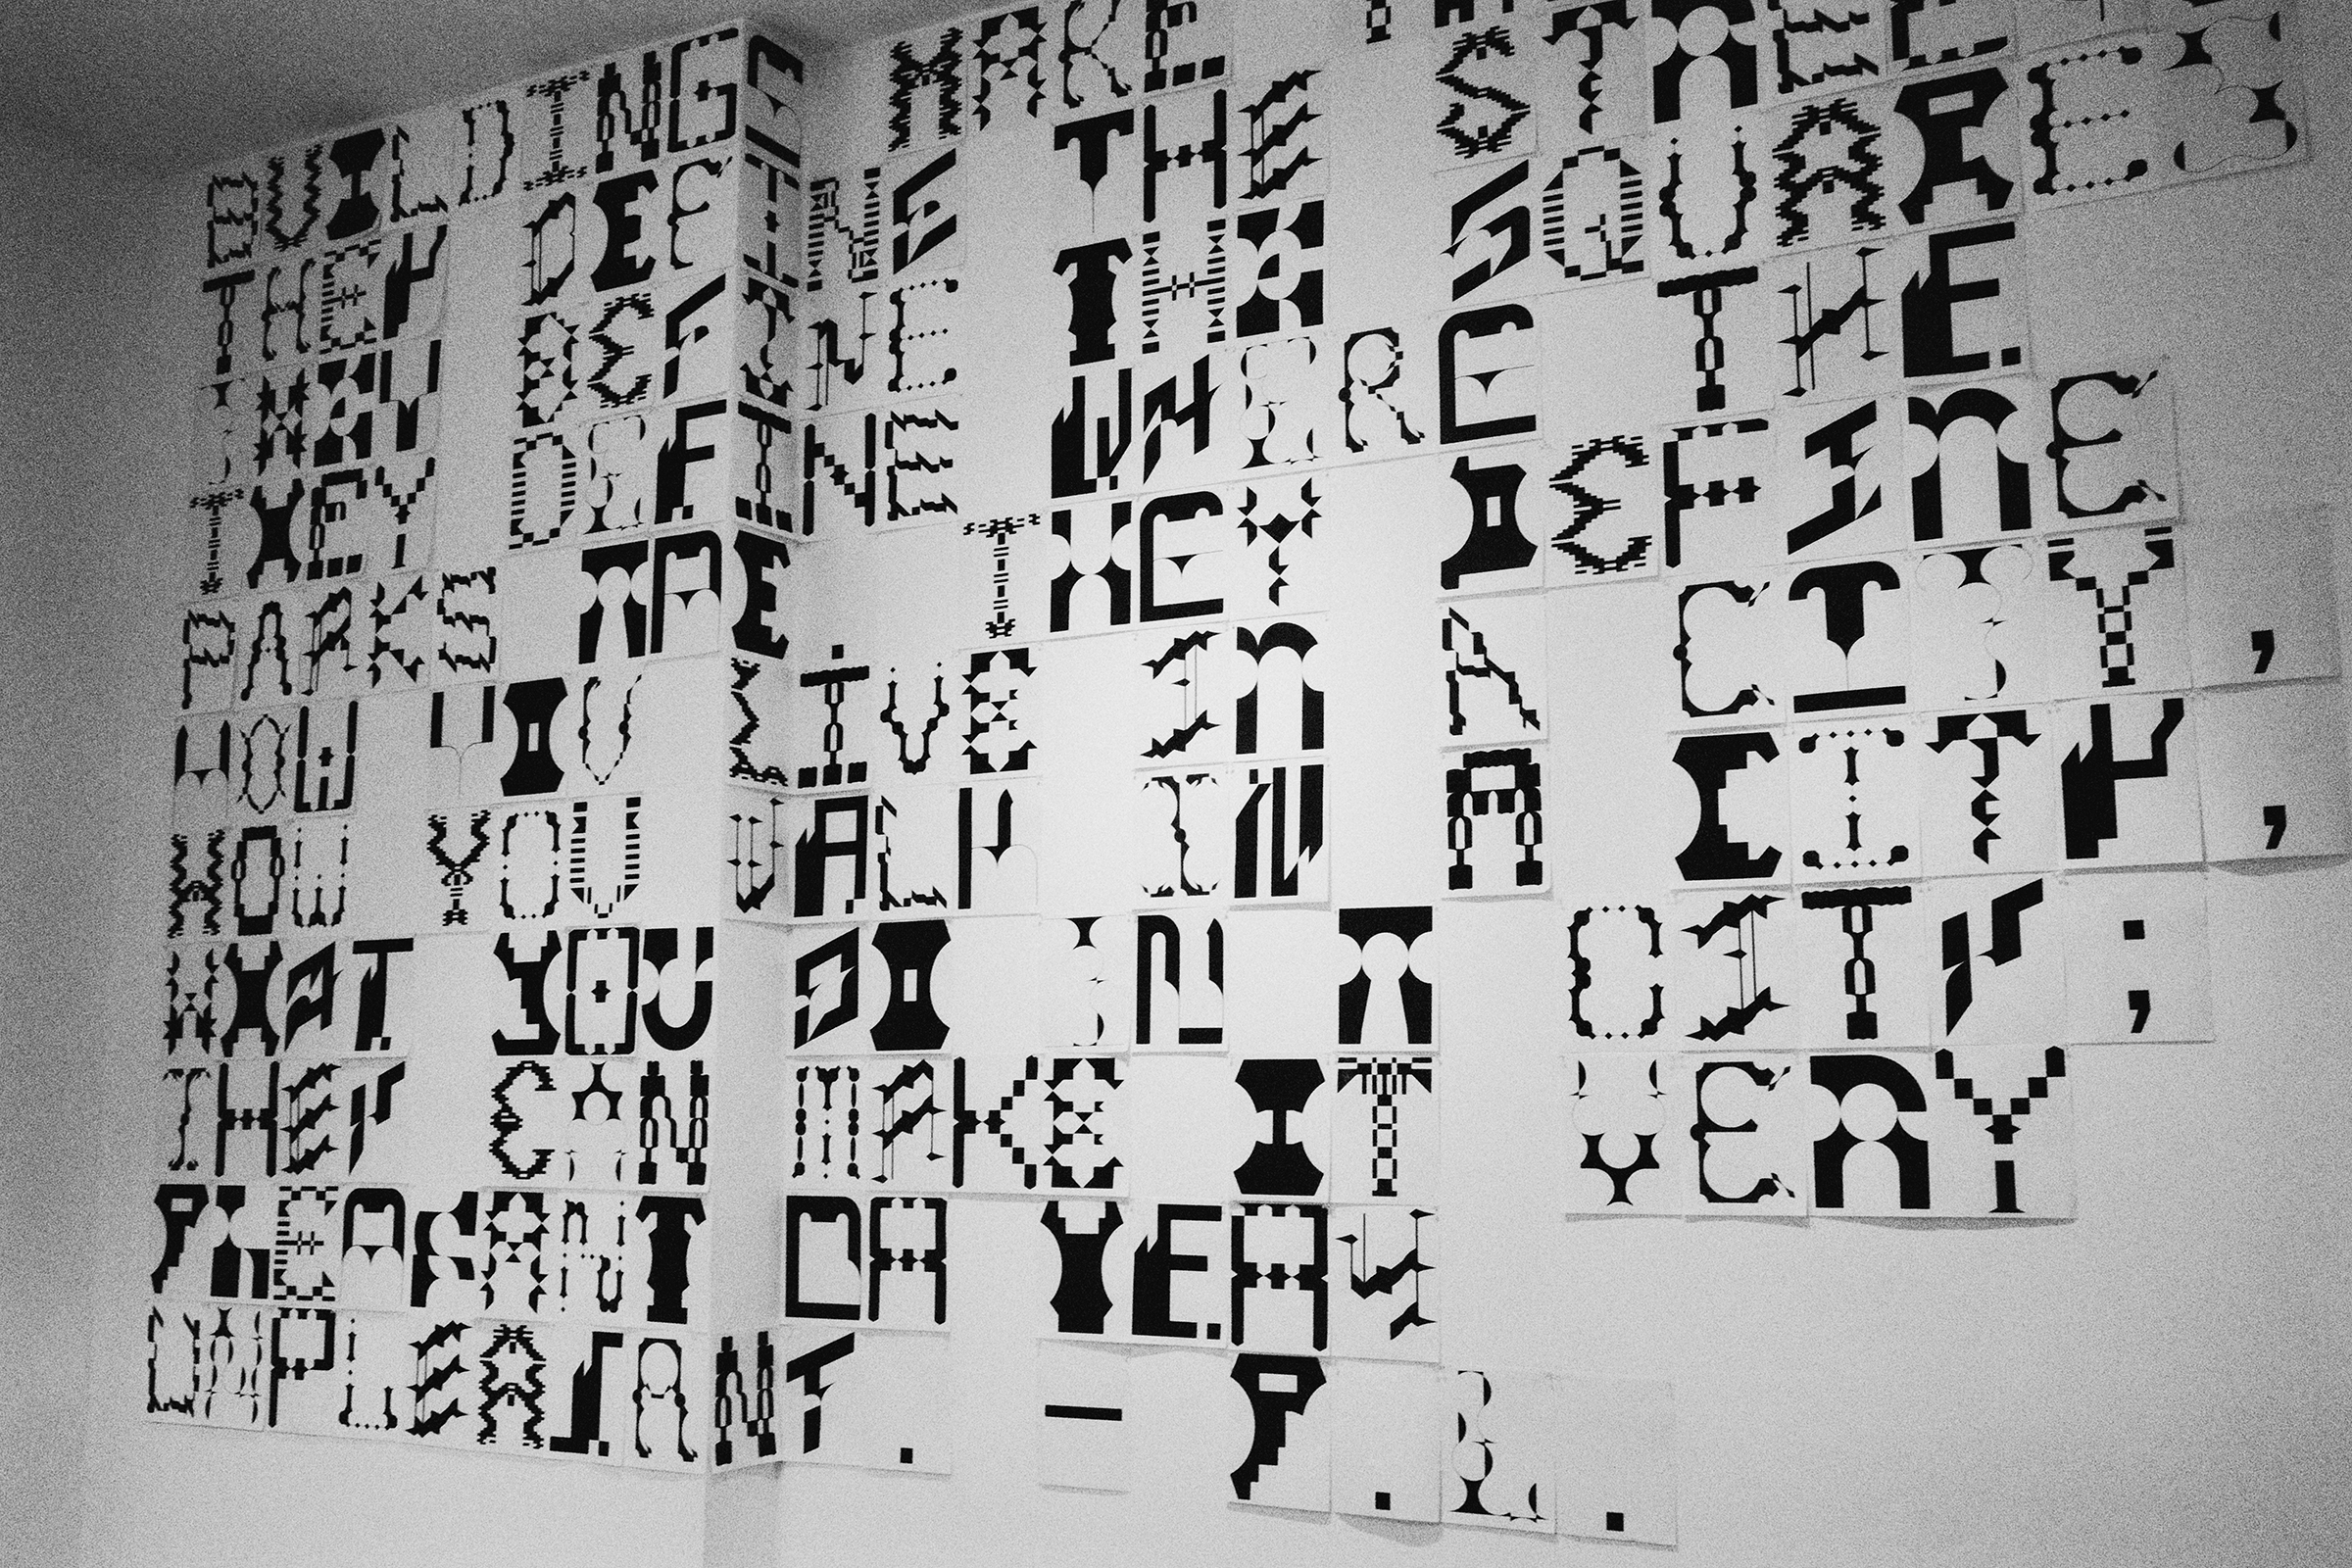 BUILDINGS MAKE
THEY DEFINE THE STREETS
THEY DEFINE THE SQUARES
THEY DEFINE WHERE THE
PARKS ARE. THEY DEFINE
HOW YOU LIVE IN A CITY,
HOW YOU WALK IN A CITY,
WHAT YOU DO IN A CITY;
THEY CAN MAKE IT VERY
PLEASANT OR VERY
UNPLEASANT. — P. L.